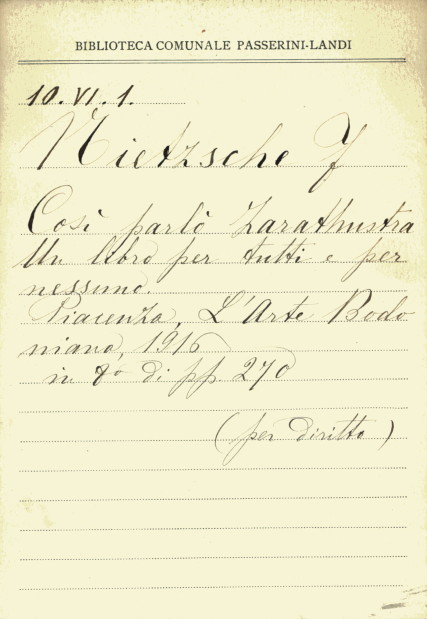 BIBLIOTECA COMUNALE PASSERINI-LANDI
10.VI.1.
Nietzsche F
Così parlò Zarathustra
Un libro per tutti e per
nessuno.
Piacenza, L'Arte Bodo
niana, 1916
in 8° di pp. 270
(per diritto)